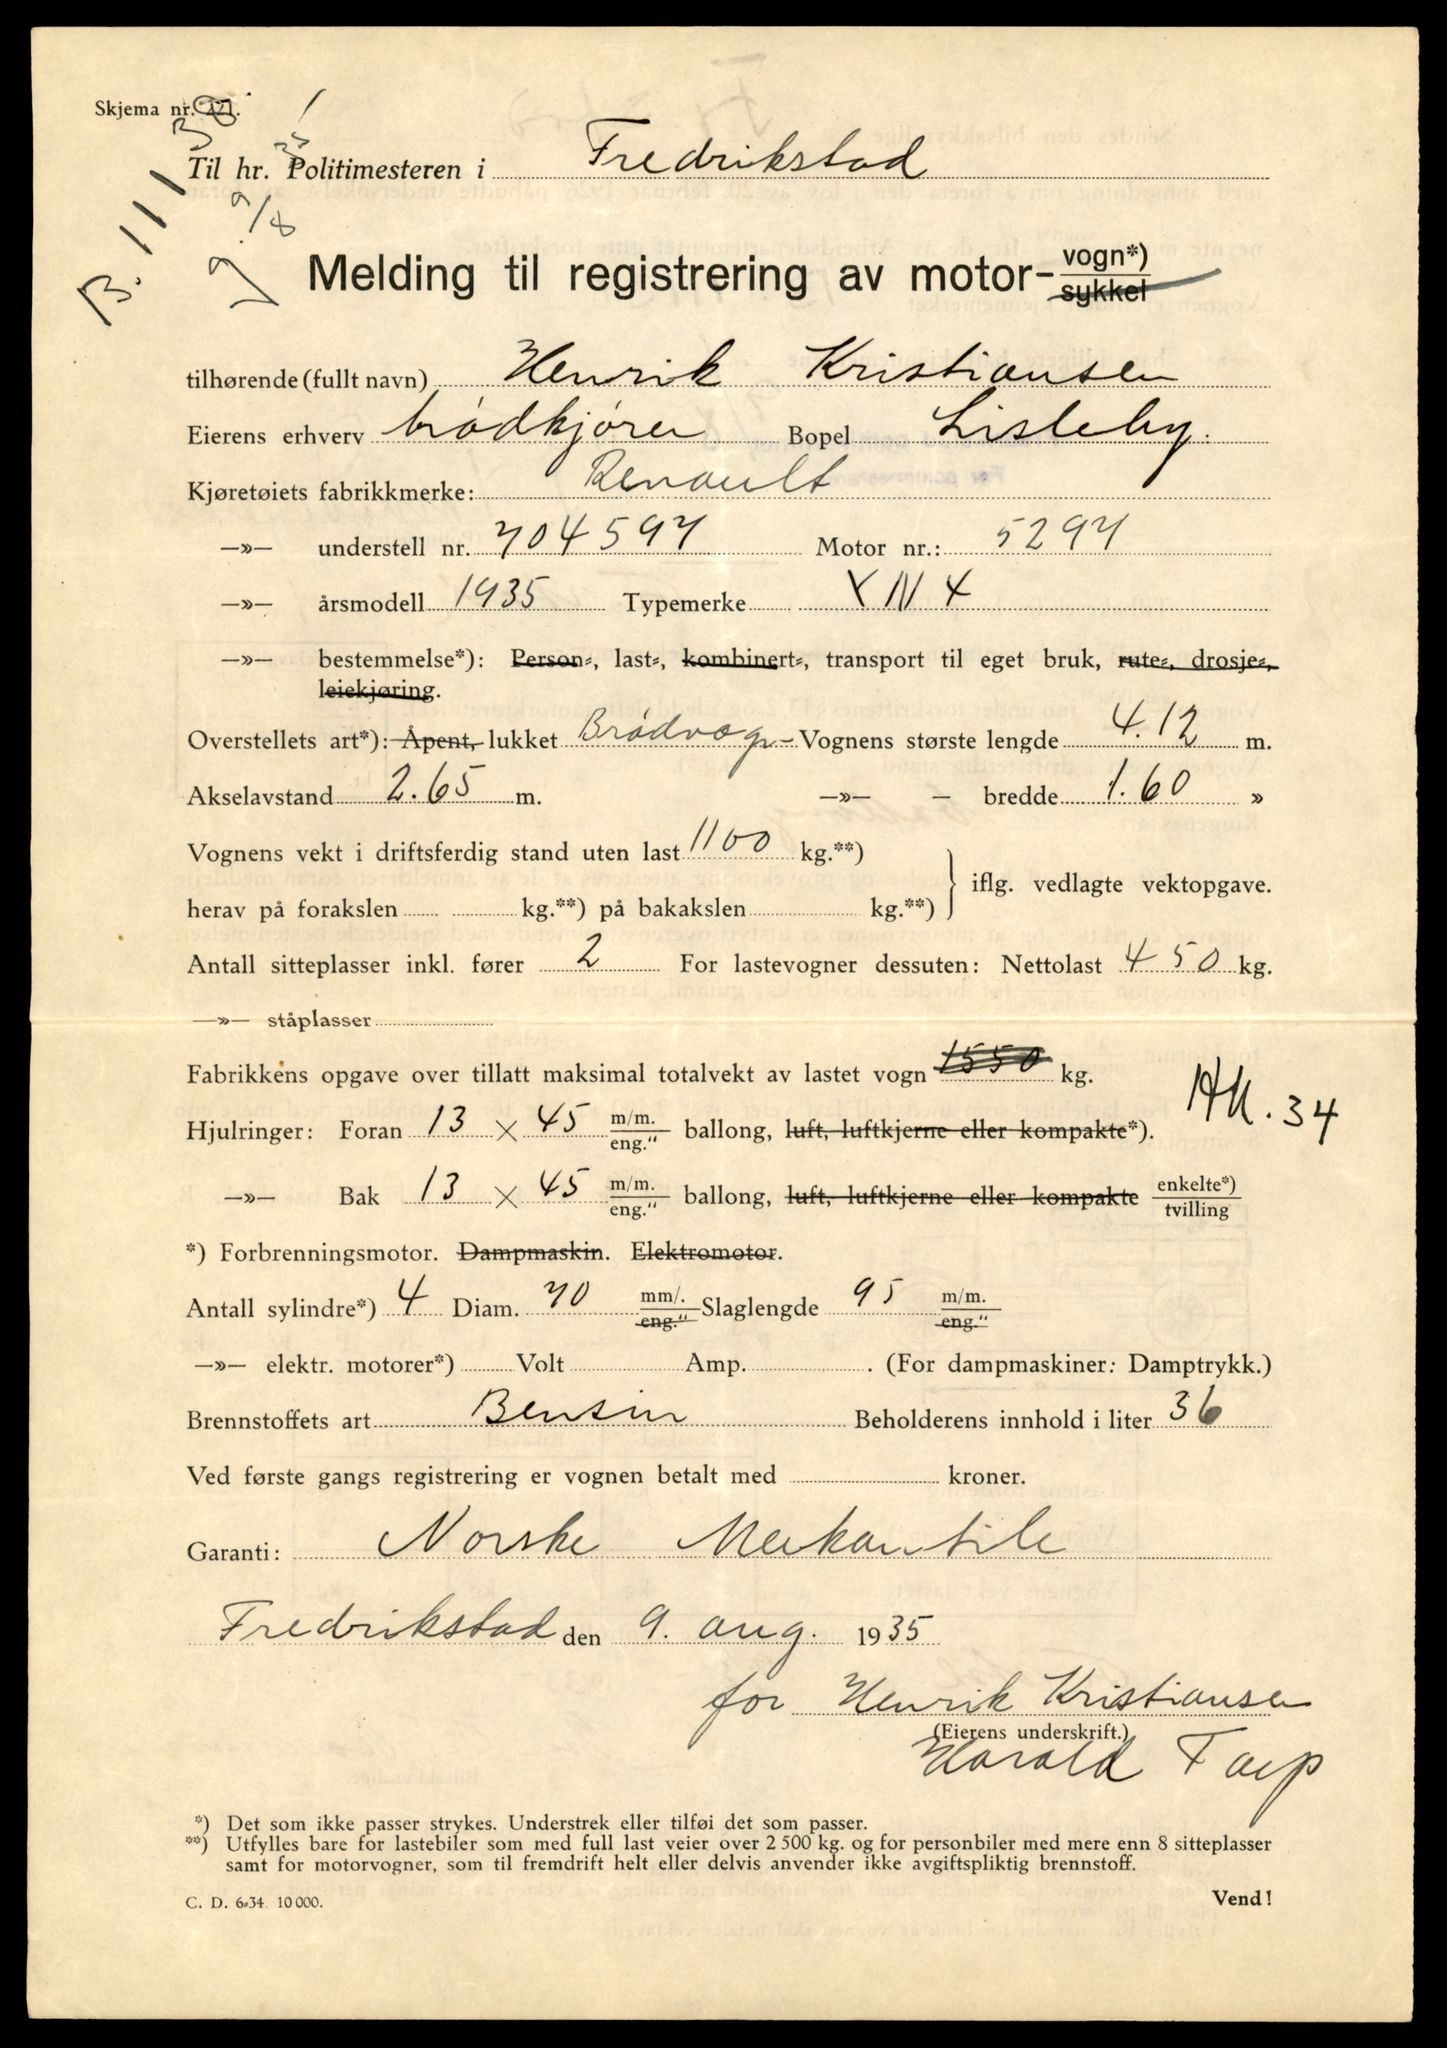 Skjema nr. 221.
B. 111
9/8
Til hr. Politimesteren i Fredrikstad
Melding til registrering av motor- vogn*)
sykkel
tilhørende (fullt navn) Henrik Kristiansen
Eierens erhverv brødkjører Bopel Lisleby.
Kjøretøiets fabrikkmerke: Renault
—»— understell nr. 704597 Motor nr.: 5297
—»— årsmodell 1935 Typemerke YN4
—»— bestemmelse*): Person-, last-, kombinert-, transport til eget bruk, rute-, drosje-,
leiekjøring.
Overstellets art*): Åpent, lukket Brødvogn - Vognens største lengde 4.12 m.
Akselavstand 2.65 m. —»— — bredde 1.60 »
Vognens vekt i driftsferdig stand uten last 1100 kg.**)
herav på forakslen kg.**) på bakakslen kg.**) } iflg. vedlagte vektopgave.
Antall sitteplasser inkl. fører 2 For lastevogner dessuten: Nettolast 450 kg.
—»— ståplasser
Fabrikkens opgave over tillatt maksimal totalvekt av lastet vogn 1550 kg.
34
Hjulringer: Foran 13 × 45 m/m. eng." ballong, luft, luftkjerne eller kompakte*).
—»— Bak 13 × 45 m/m. eng." ballong, luft, luftkjerne eller kompakte enkelte*) tvilling
*) Forbrenningsmotor. Dampmaskin. Elektromotor.
Antall sylindre*) 4 Diam. 70 mm/. eng." Slaglengde 95 m/m. eng."
—»— elektr. motorer*) Volt Amp. . (For dampmaskiner: Damptrykk.)
Brennstoffets art Bensin Beholderens innhold i liter 36
Ved første gangs registrering er vognen betalt med kroner.
Garanti: Norske Merkantile
Fredrikstad den 9. aug. 1935
for Henrik Kristiansen
(Eierens underskrift.)
Harald
*) Det som ikke passer strykes. Understrek eller tilføi det som passer.
**) Utfylles bare for lastebiler som med full last veier over 2 500 kg. og for personbiler med mere enn 8 sitteplasser
samt for motorvogner, som til fremdrift helt eller delvis anvender ikke avgiftspliktig brennstoff.
C. D. 6-34. 10 000. Vend!